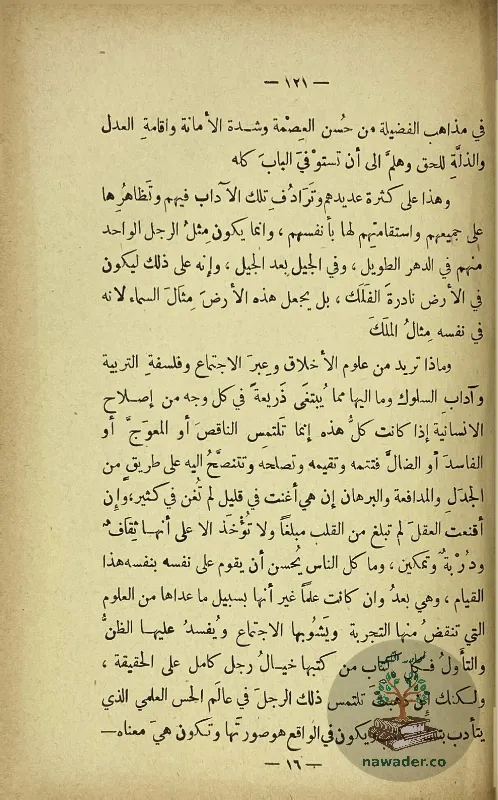 — ١٢١ —
في مذاهب الفضيلة من حُسن العِصْمة وشدة الأمانة واقامةِ العدل
والذلَّةِ للحق وهلمَّ الى أن تستوْفيَ البابَ كله
وهذا على كثرة عديدهم وتَرَادُفِ تلك الآداب فيهم وتَظاهُرِها
على جميعهم واستقامتِهم لها بأنفسهم ، وانما يكون مِثلُ الرجل الواحد
منهم في الدهر الطويل ، وفي الجيل بعد الجيل ، وإنه على ذلك ليكون
في الأرض نادرةَ الفَلَك ، بل يجعل هذه الأرضَ مِثالَ السماء لانه
في نفسه مِثالُ الملَكَ
وماذا تريد من علوم الأخلاق وعِبَر الاجتماع وفلسفةِ التربية
وآدابِ السلوك وما اليها مما يُبتغَى ذَريعةً في كل وجه من إصلاح
الانسانية إذا كانت كلُّ هذه إنما تَلتمِس الناقصَ أو المعوَجَّ أو
الفاسدَ أو الضالَّ فتتمه وتقيمه وتصلحه وتتنصَّحُ اليه على طريقٍ من
الجدَل والمدافعة والبرهان إن هي أغنت في قليل لم تُغن في كثير، وإن
أقنعت العقلَ لم تبلغ من القلب مبلغاً ولا تُؤْخَذ الا على أنها ثِقَافٌ
ودُرْبةٌ وتمكين ، وما كل الناس يُحسن أن يقوم على نفسه بنفسه هذا
القيام ، وهي بعدُ وان كانت علماً غير أنها بسبيل ما عداها من العلوم
التي تنقضُ منها التجربة ويَشُوبها الاجتماع ويُفسدُ عليها الظنُّ
والتأوُّلُ فكل كتاب من كتبها خيالُ رجل كامل على الحقيقة ،
ولكنك تلتمس ذلك الرجلَ في عالَم الحس العلمي الذي
يتأدب ويكون في الواقع هو صورتَها وتكون هيَ معناه—
— ١٦ —
نوادر
nawader.co